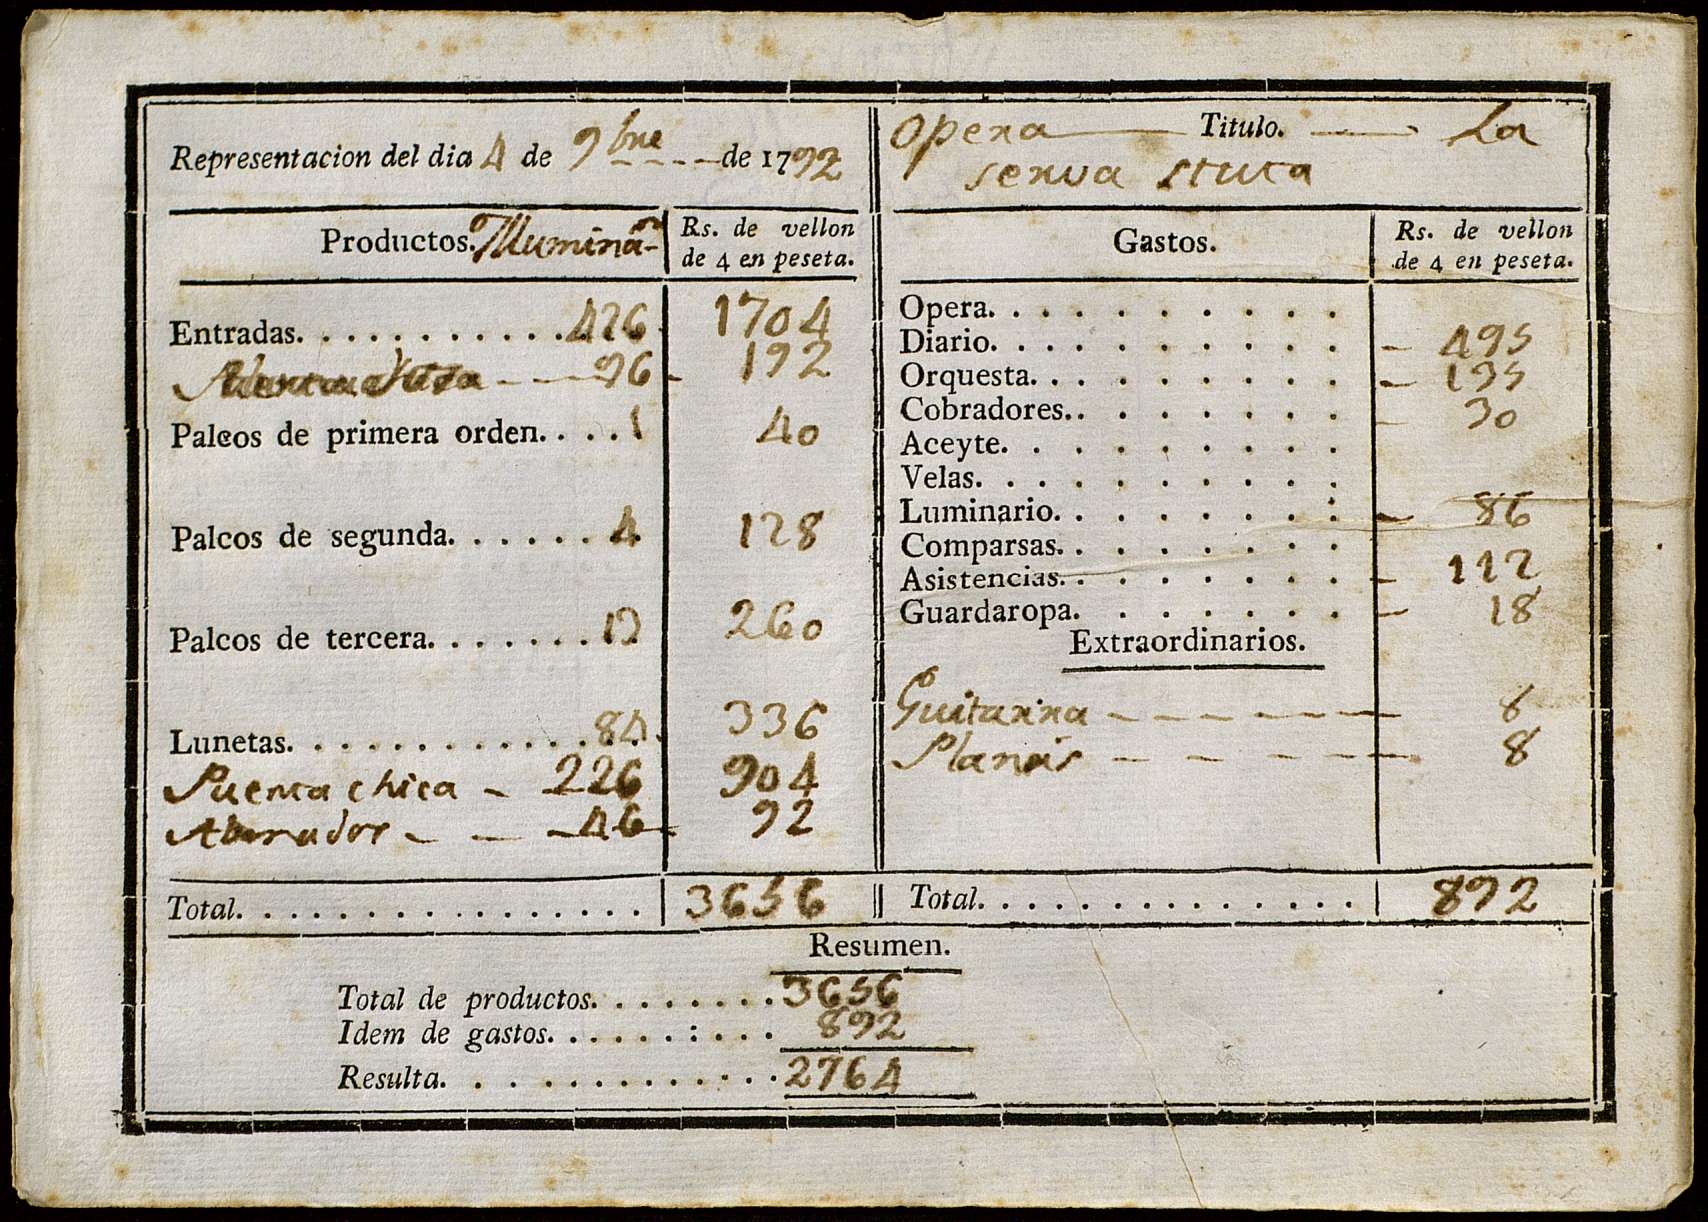 Representacion del dia 4 de 9bre de 1792
Opera Titulo. La
serva stuta
Productos. Illuminon
Rs. de vellon
de 4 en peseta.
Entradas. 426 1704
96 192
Palcos de primera orden. 1 40
Palcos de segunda. 4 128
Palcos de tercera. 13 260
Lunetas. 84 336
Puerta chica 226 904
46 92
Total. 3656
Gastos.
Rs. de vellon
de 4 en peseta.
Opera.
Diario. 495
Orquesta. 135
Cobradores. 30
Aceyte.
Velas.
Luminario. 86
Comparsas.
Asistencias. 112
Guardaropa. 18
Extraordinarios.
Guitarra 8
8
Total. 892
Resumen.
Total de productos. 3656
Idem de gastos. 892
Resulta. 2764